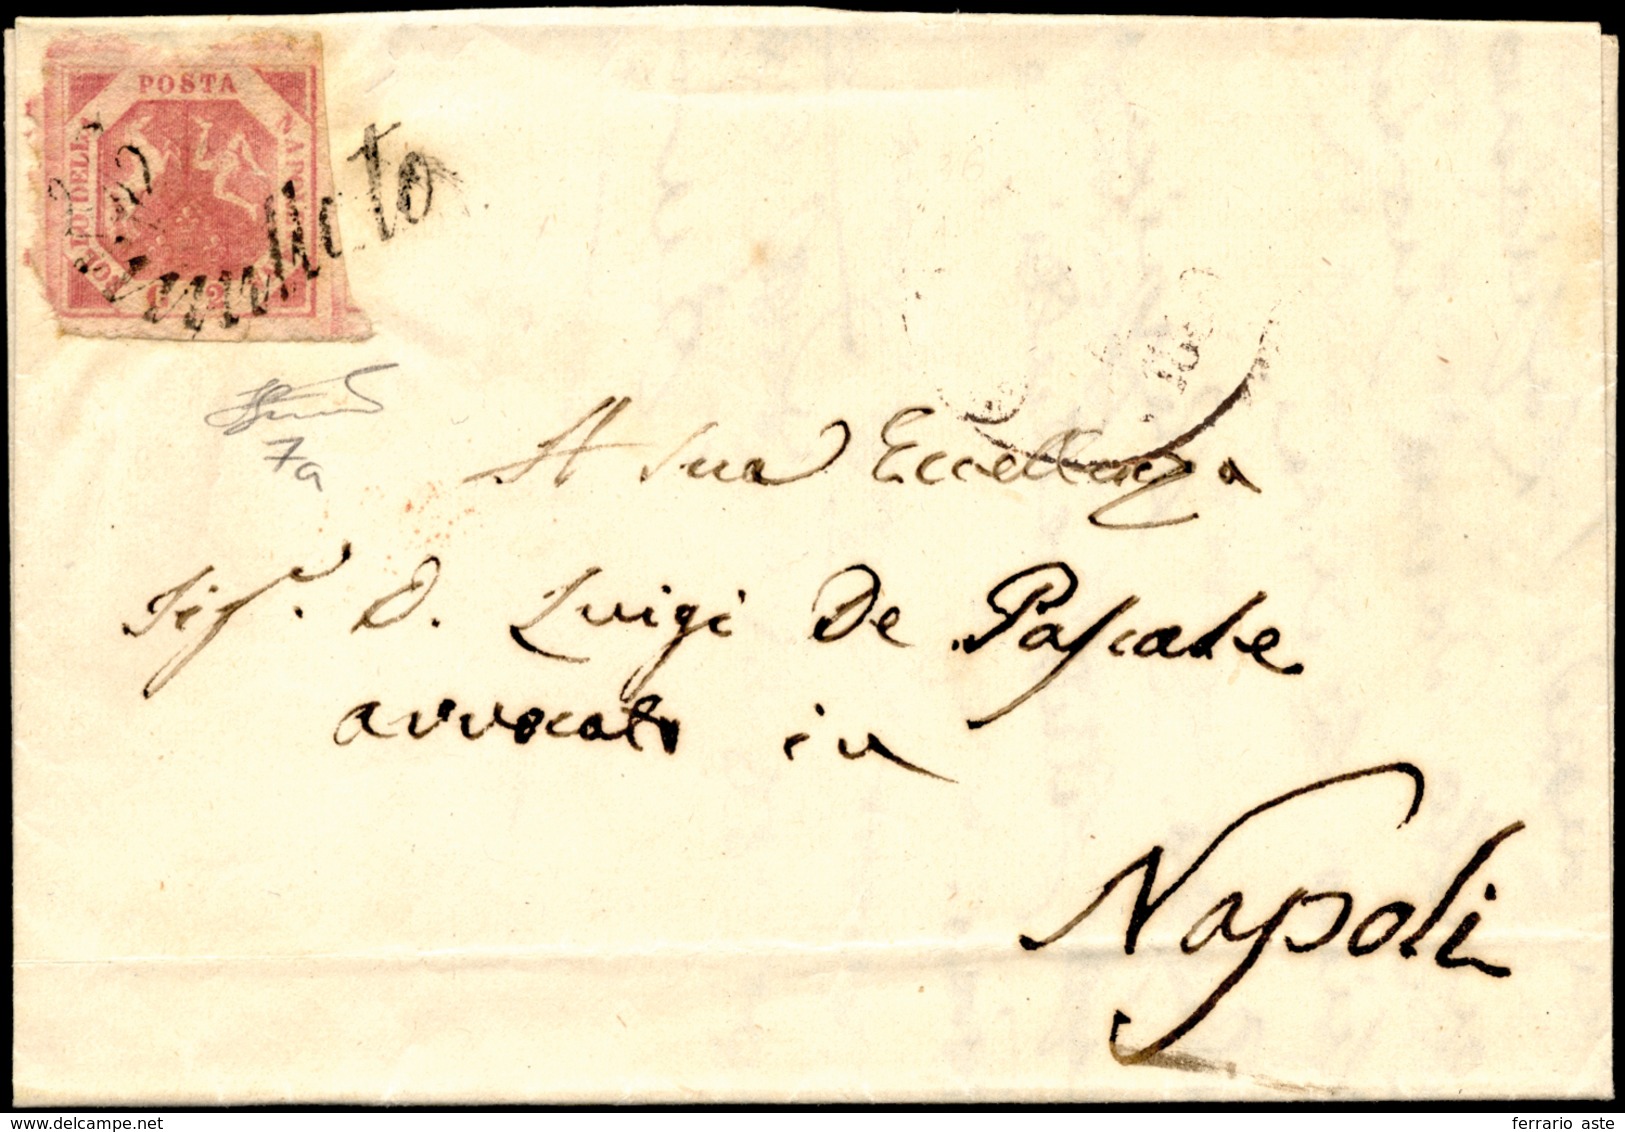 POSTA
NAPO
BOLLO DELLA
G. 2
Annullato
7a
A Sua Eccellenza
Sig.r D. Luigi De Pascale
avvocato in
Napoli
ferrario aste